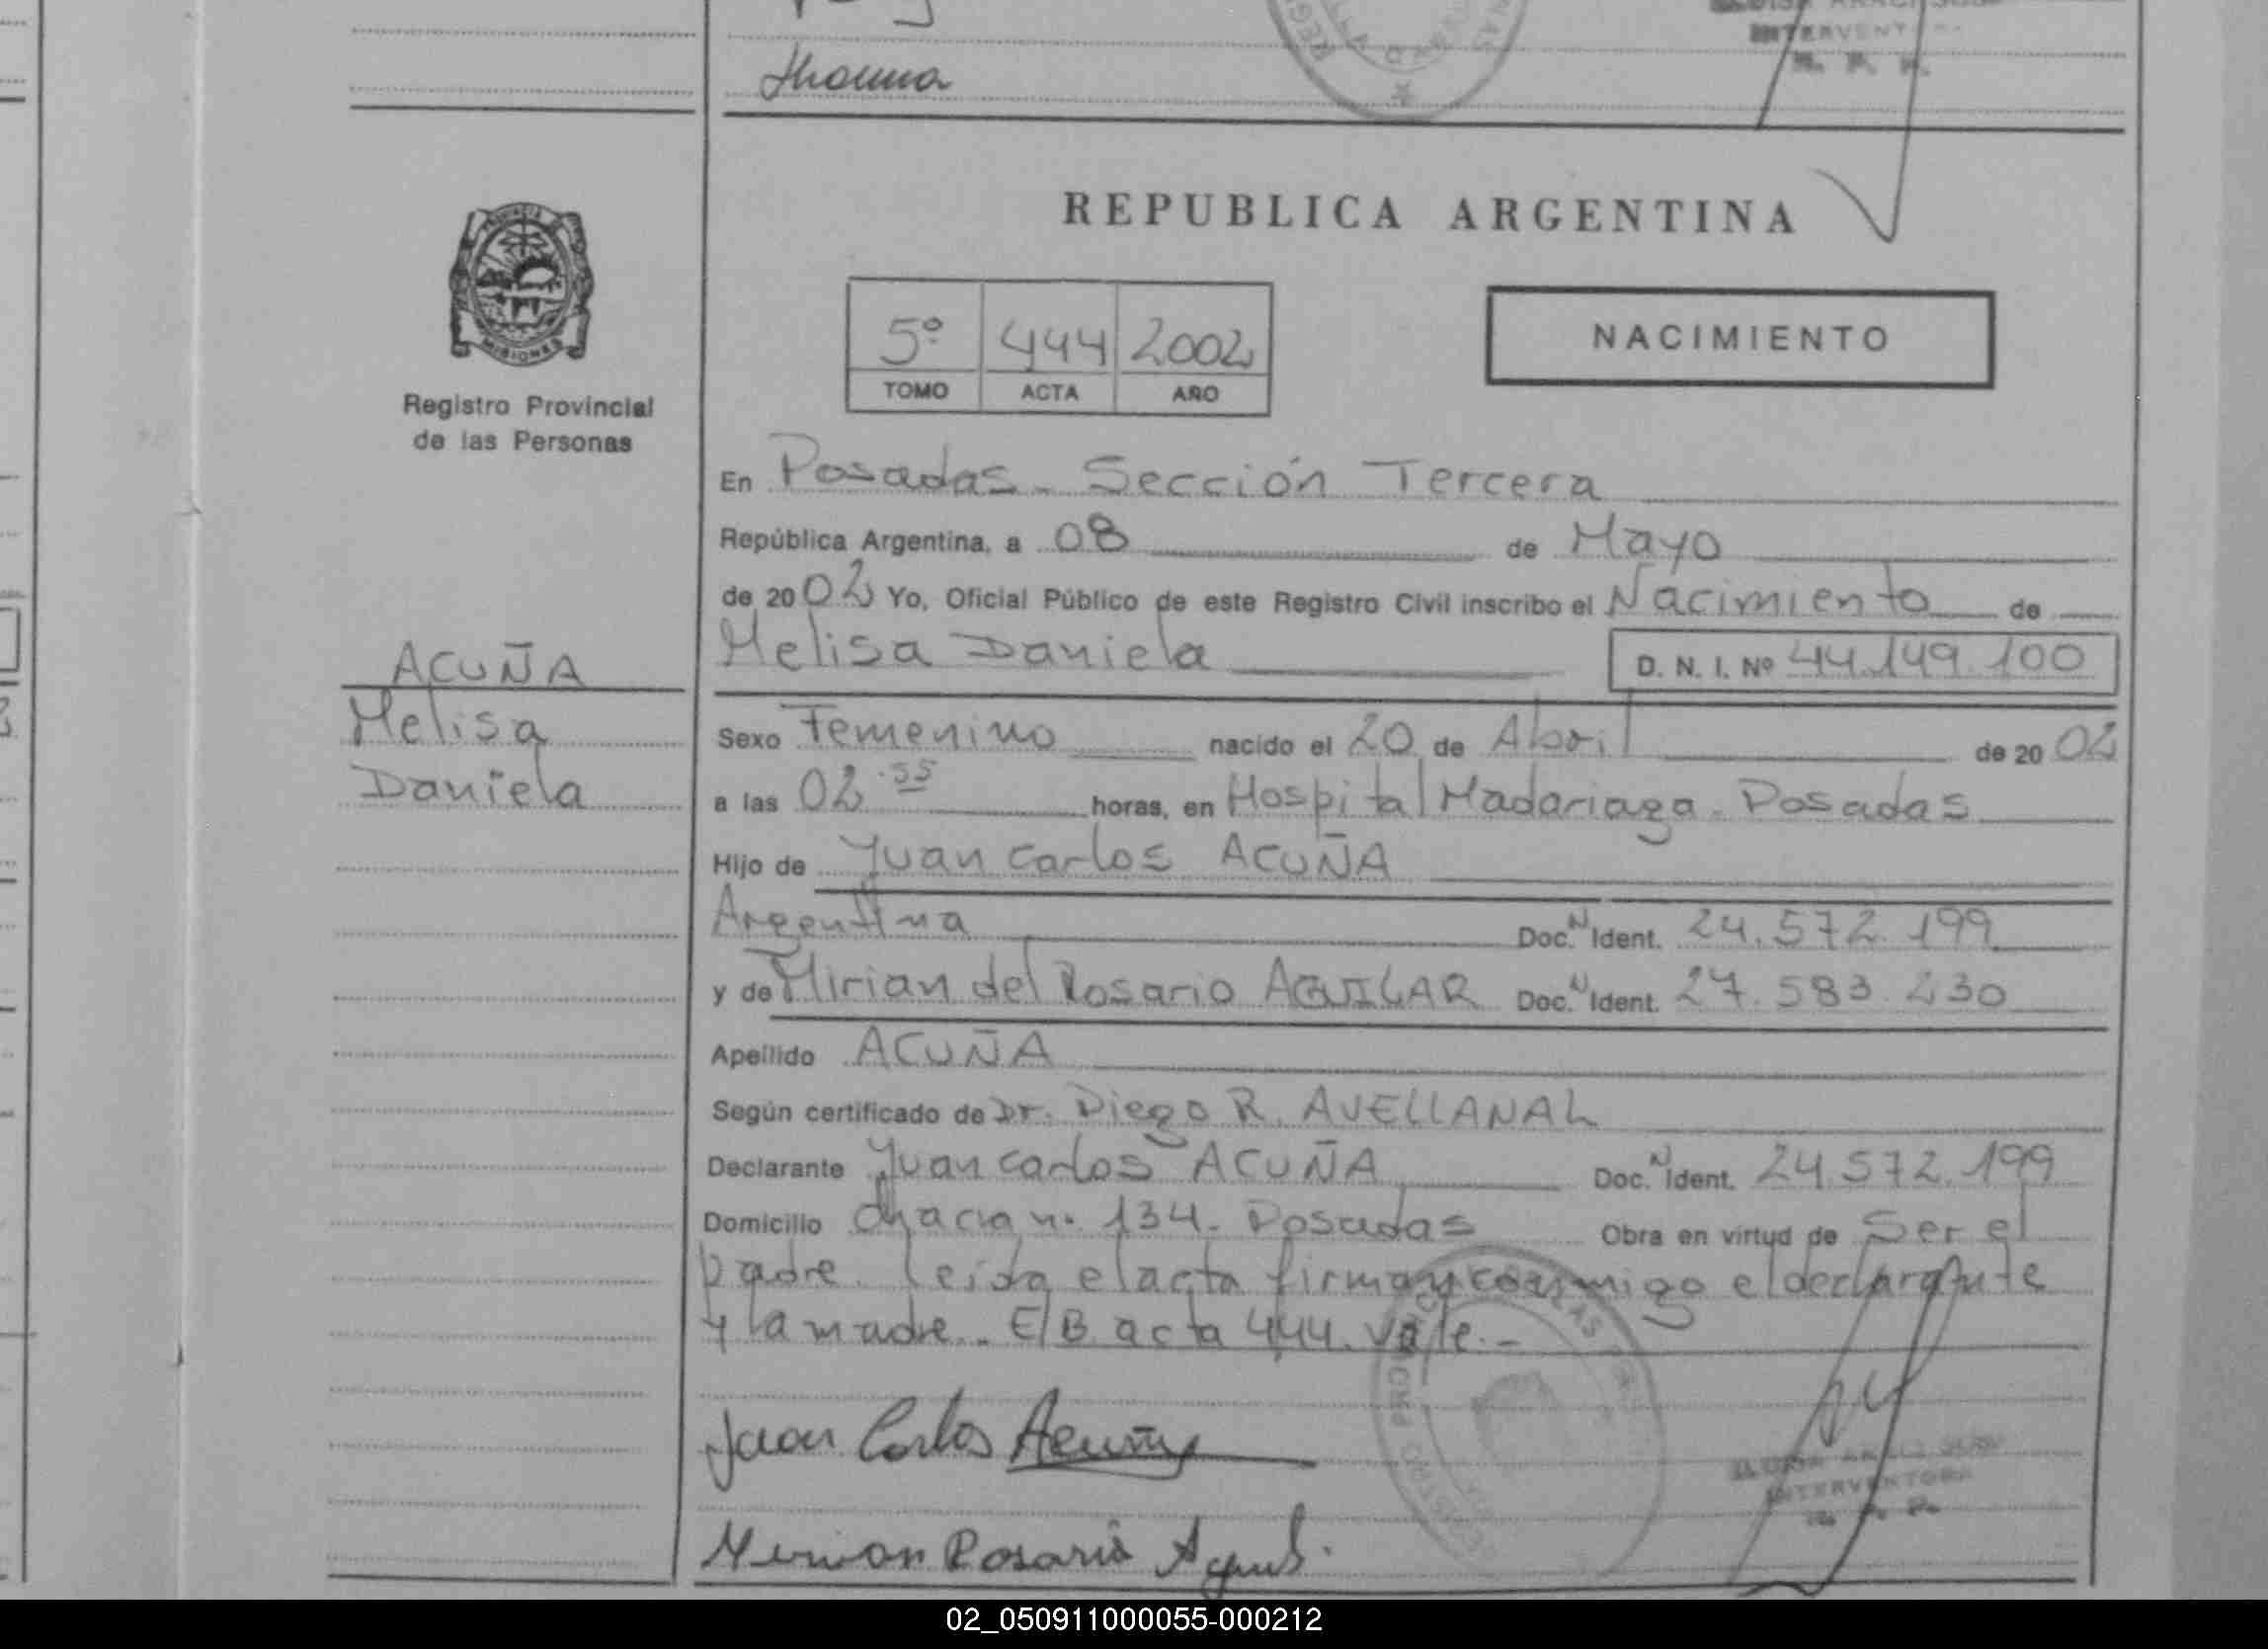 Jhouna
INTERVENT
R. P. P.
MISIONES
Registro Provincial
de las Personas
REPUBLICA ARGENTINA
5º 444 2002
TOMO ACTA AÑO
NACIMIENTO
En Posadas - Sección Tercera
República Argentina, a 08 de Mayo
de 20 02 Yo, Oficial Público de este Registro Civil inscribo el Nacimiento de
Melisa Daniela D. N. I. Nº 44.149.100
ACUÑA
Melisa
Daniela
Sexo Femenino nacido el 20 de Abril de 20 02
a las 02.55 horas, en Hospital Madariaga - Posadas
Hijo de Juan Carlos ACUÑA
Argentina Doc. N Ident. 24.572.199
y de Mirian del Rosario AGUILAR Doc. N Ident. 27.583.230
Apellido ACUÑA
Según certificado de Dr. Diego R. AVELLANAL
Declarante Juan Carlos ACUÑA Doc. N Ident. 24.572.199
Domicilio Chacra nº 134 - Posadas Obra en virtud de Ser el
padre. Leida el acta firman conmigo el declarante
y la madre.- E/B acta 444. Vale.-
Juan Carlos Acuña
INTERVENTORA
R. P. P.
Mirian Rosario
02_050911000055-000212